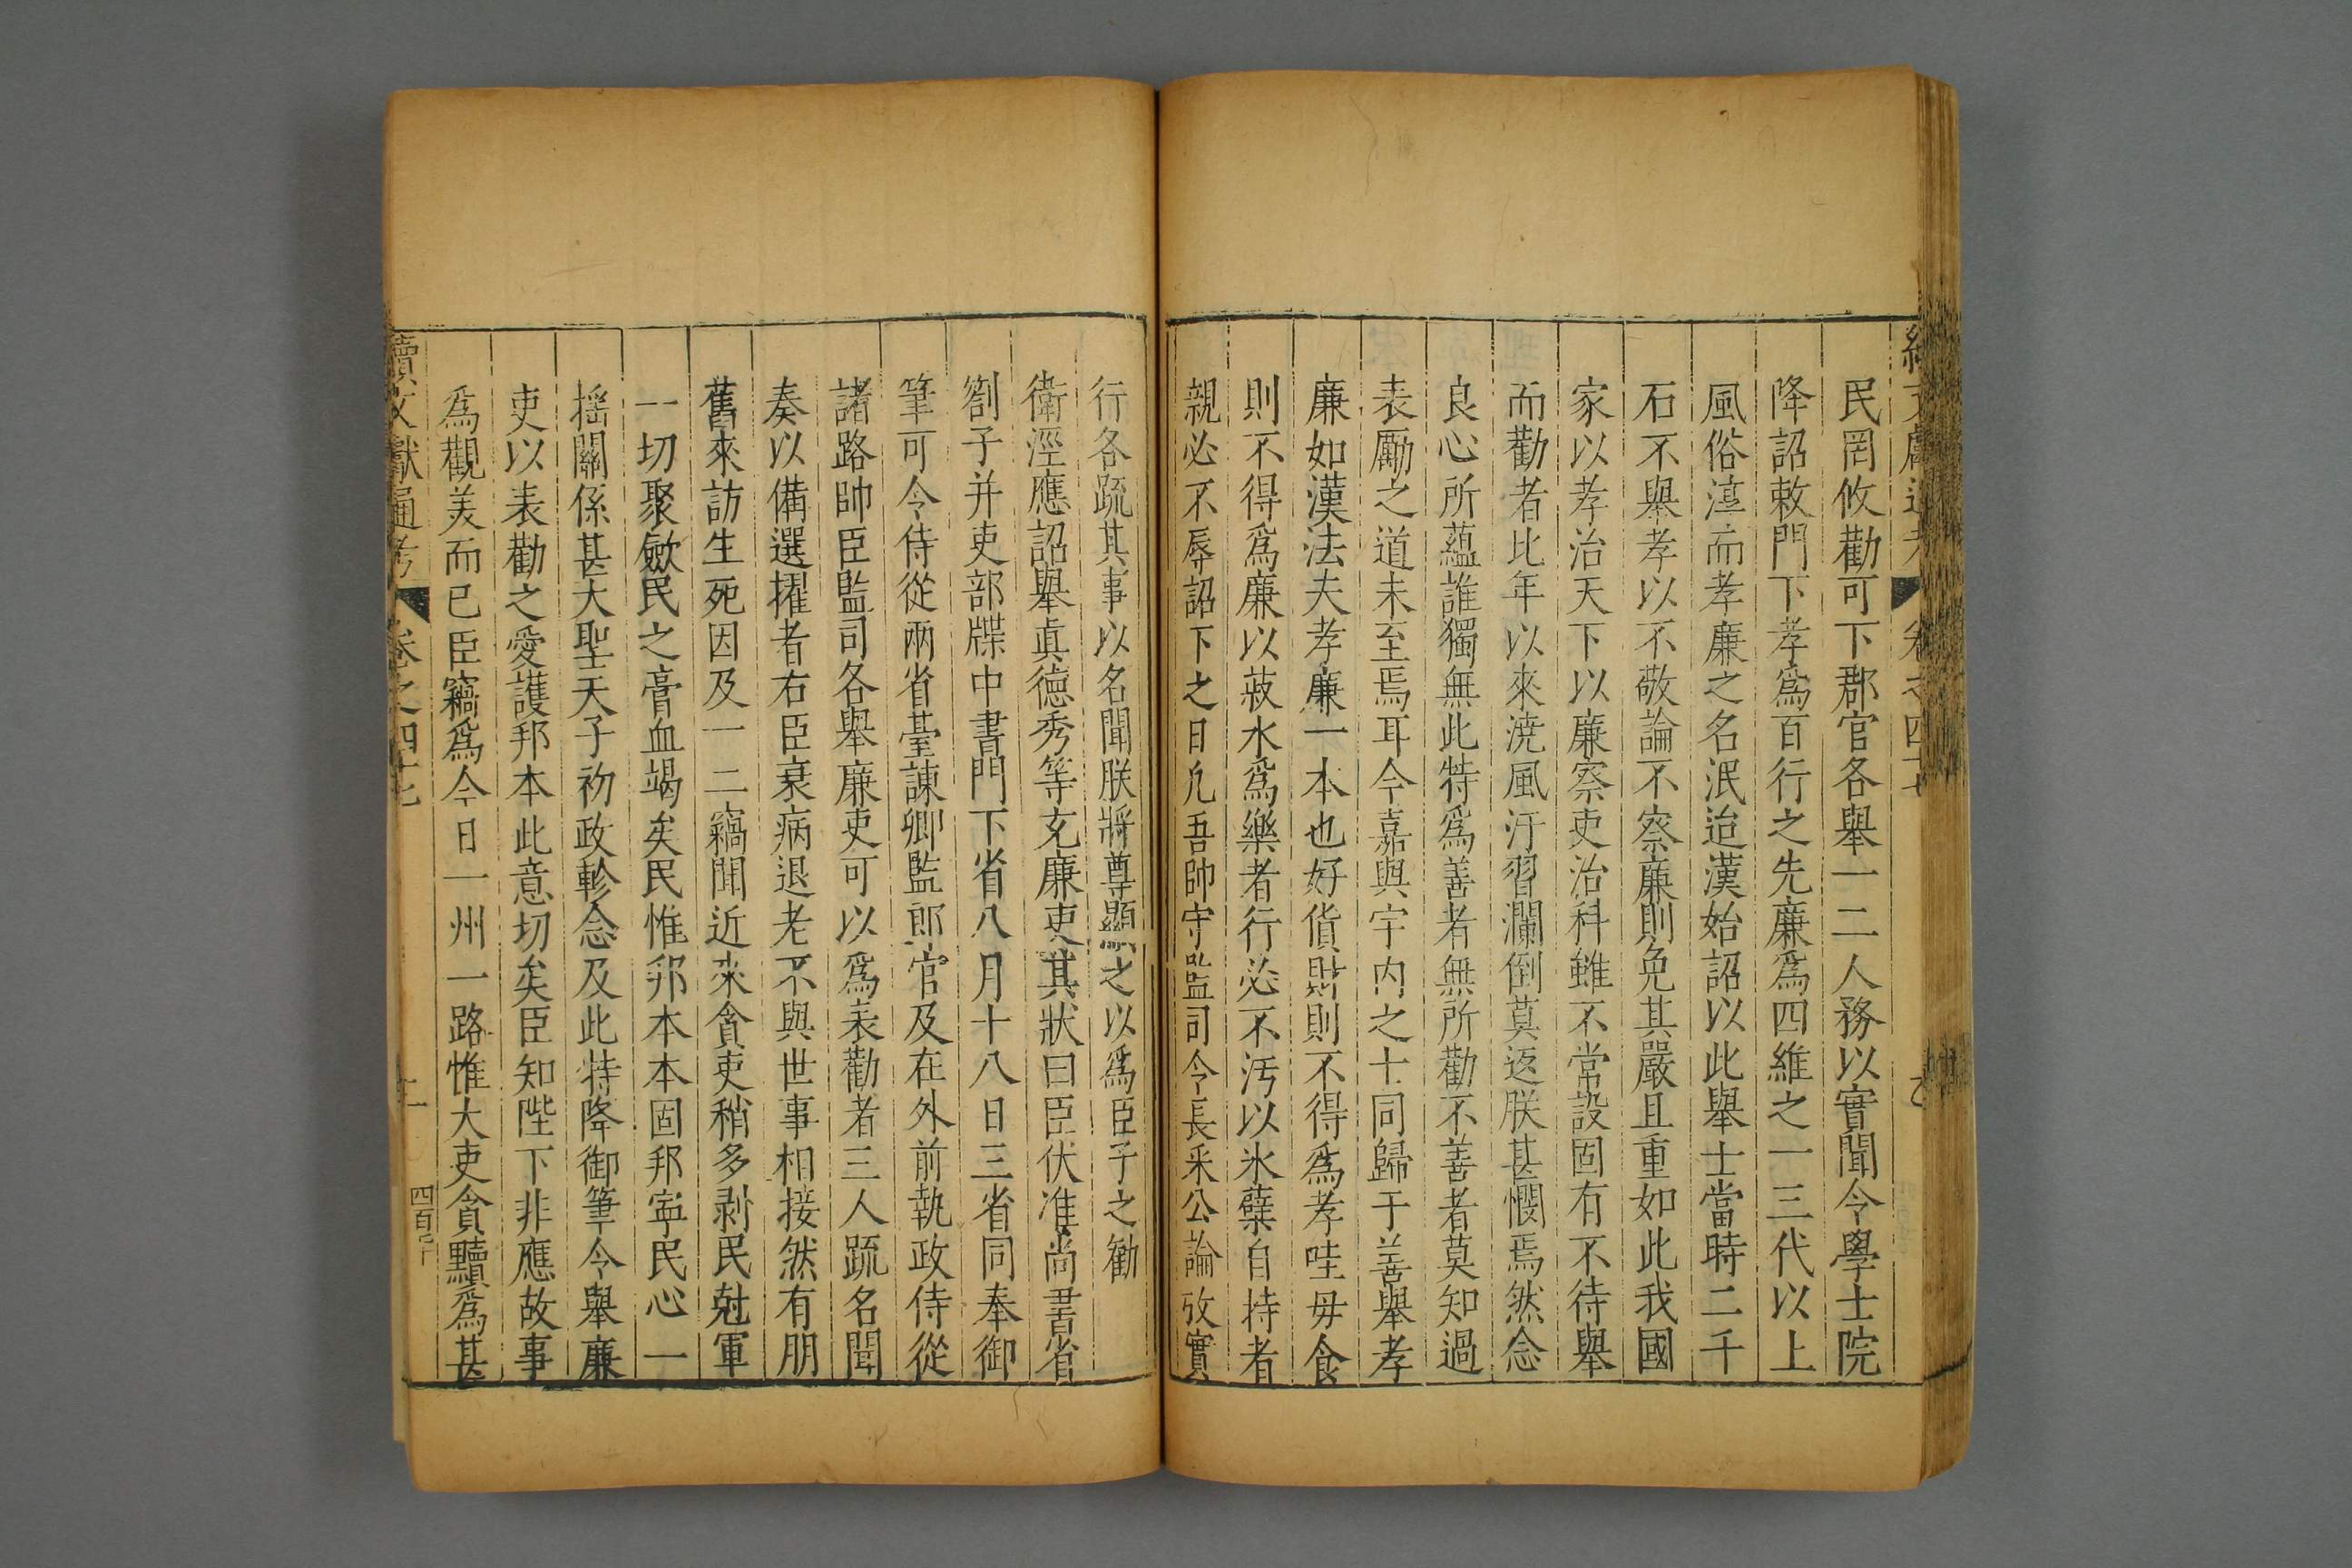 民罔攸勸可下郡官各舉一二人務以實聞令學士院
降詔敕門下孝爲百行之先廉爲四維之一三代以上
風俗淳而孝廉之名泯迨漢始詔以此舉士當時二千
石不舉孝以不敬論不察廉則免其嚴且重如此我國
家以孝治天下以廉察吏治科雖不常設固有不待舉
而勸者比年以來澆風汙習瀾倒莫返朕甚憫焉然念
良心所蘊誰獨無此特爲善者無所勸不善者莫知過
表勵之道未至焉耳今嘉與宇内之士同歸于善舉孝
廉如漢法夫孝廉一本也好貨財則不得爲孝哇毋食
則不得爲廉以菽水爲樂者行必不汚以氷蘖自持者
親必不辱詔下之日凡吾帥守監司令長采公論攷實
行各䟽其事以名聞朕將尊顯之以爲臣子之勸
衛涇應詔舉眞德秀等充廉吏其狀曰臣伏准尚書省
劄子并吏部牒中書門下省八月十八日三省同奉御
筆可令侍從兩省臺諫卿監郎官及在外前執政侍從
諸路帥臣監司各舉廉吏可以爲表勸者三人䟽名聞
奏以備選擢者右臣衰病退老不與世事相接然有朋
舊來訪生死因及一二竊聞近來貪吏稍多剥民尅軍
一切聚歛民之膏血竭矣民惟邦本本固邦寧民心一
摇關係甚大聖天子初政軫念及此特降御筆令舉廉
吏以表勸之愛護邦本此意切矣臣知陛下非應故事
爲觀美而已臣竊爲今日一州一路惟大吏貪黷爲甚
續文獻通考 卷之四十七